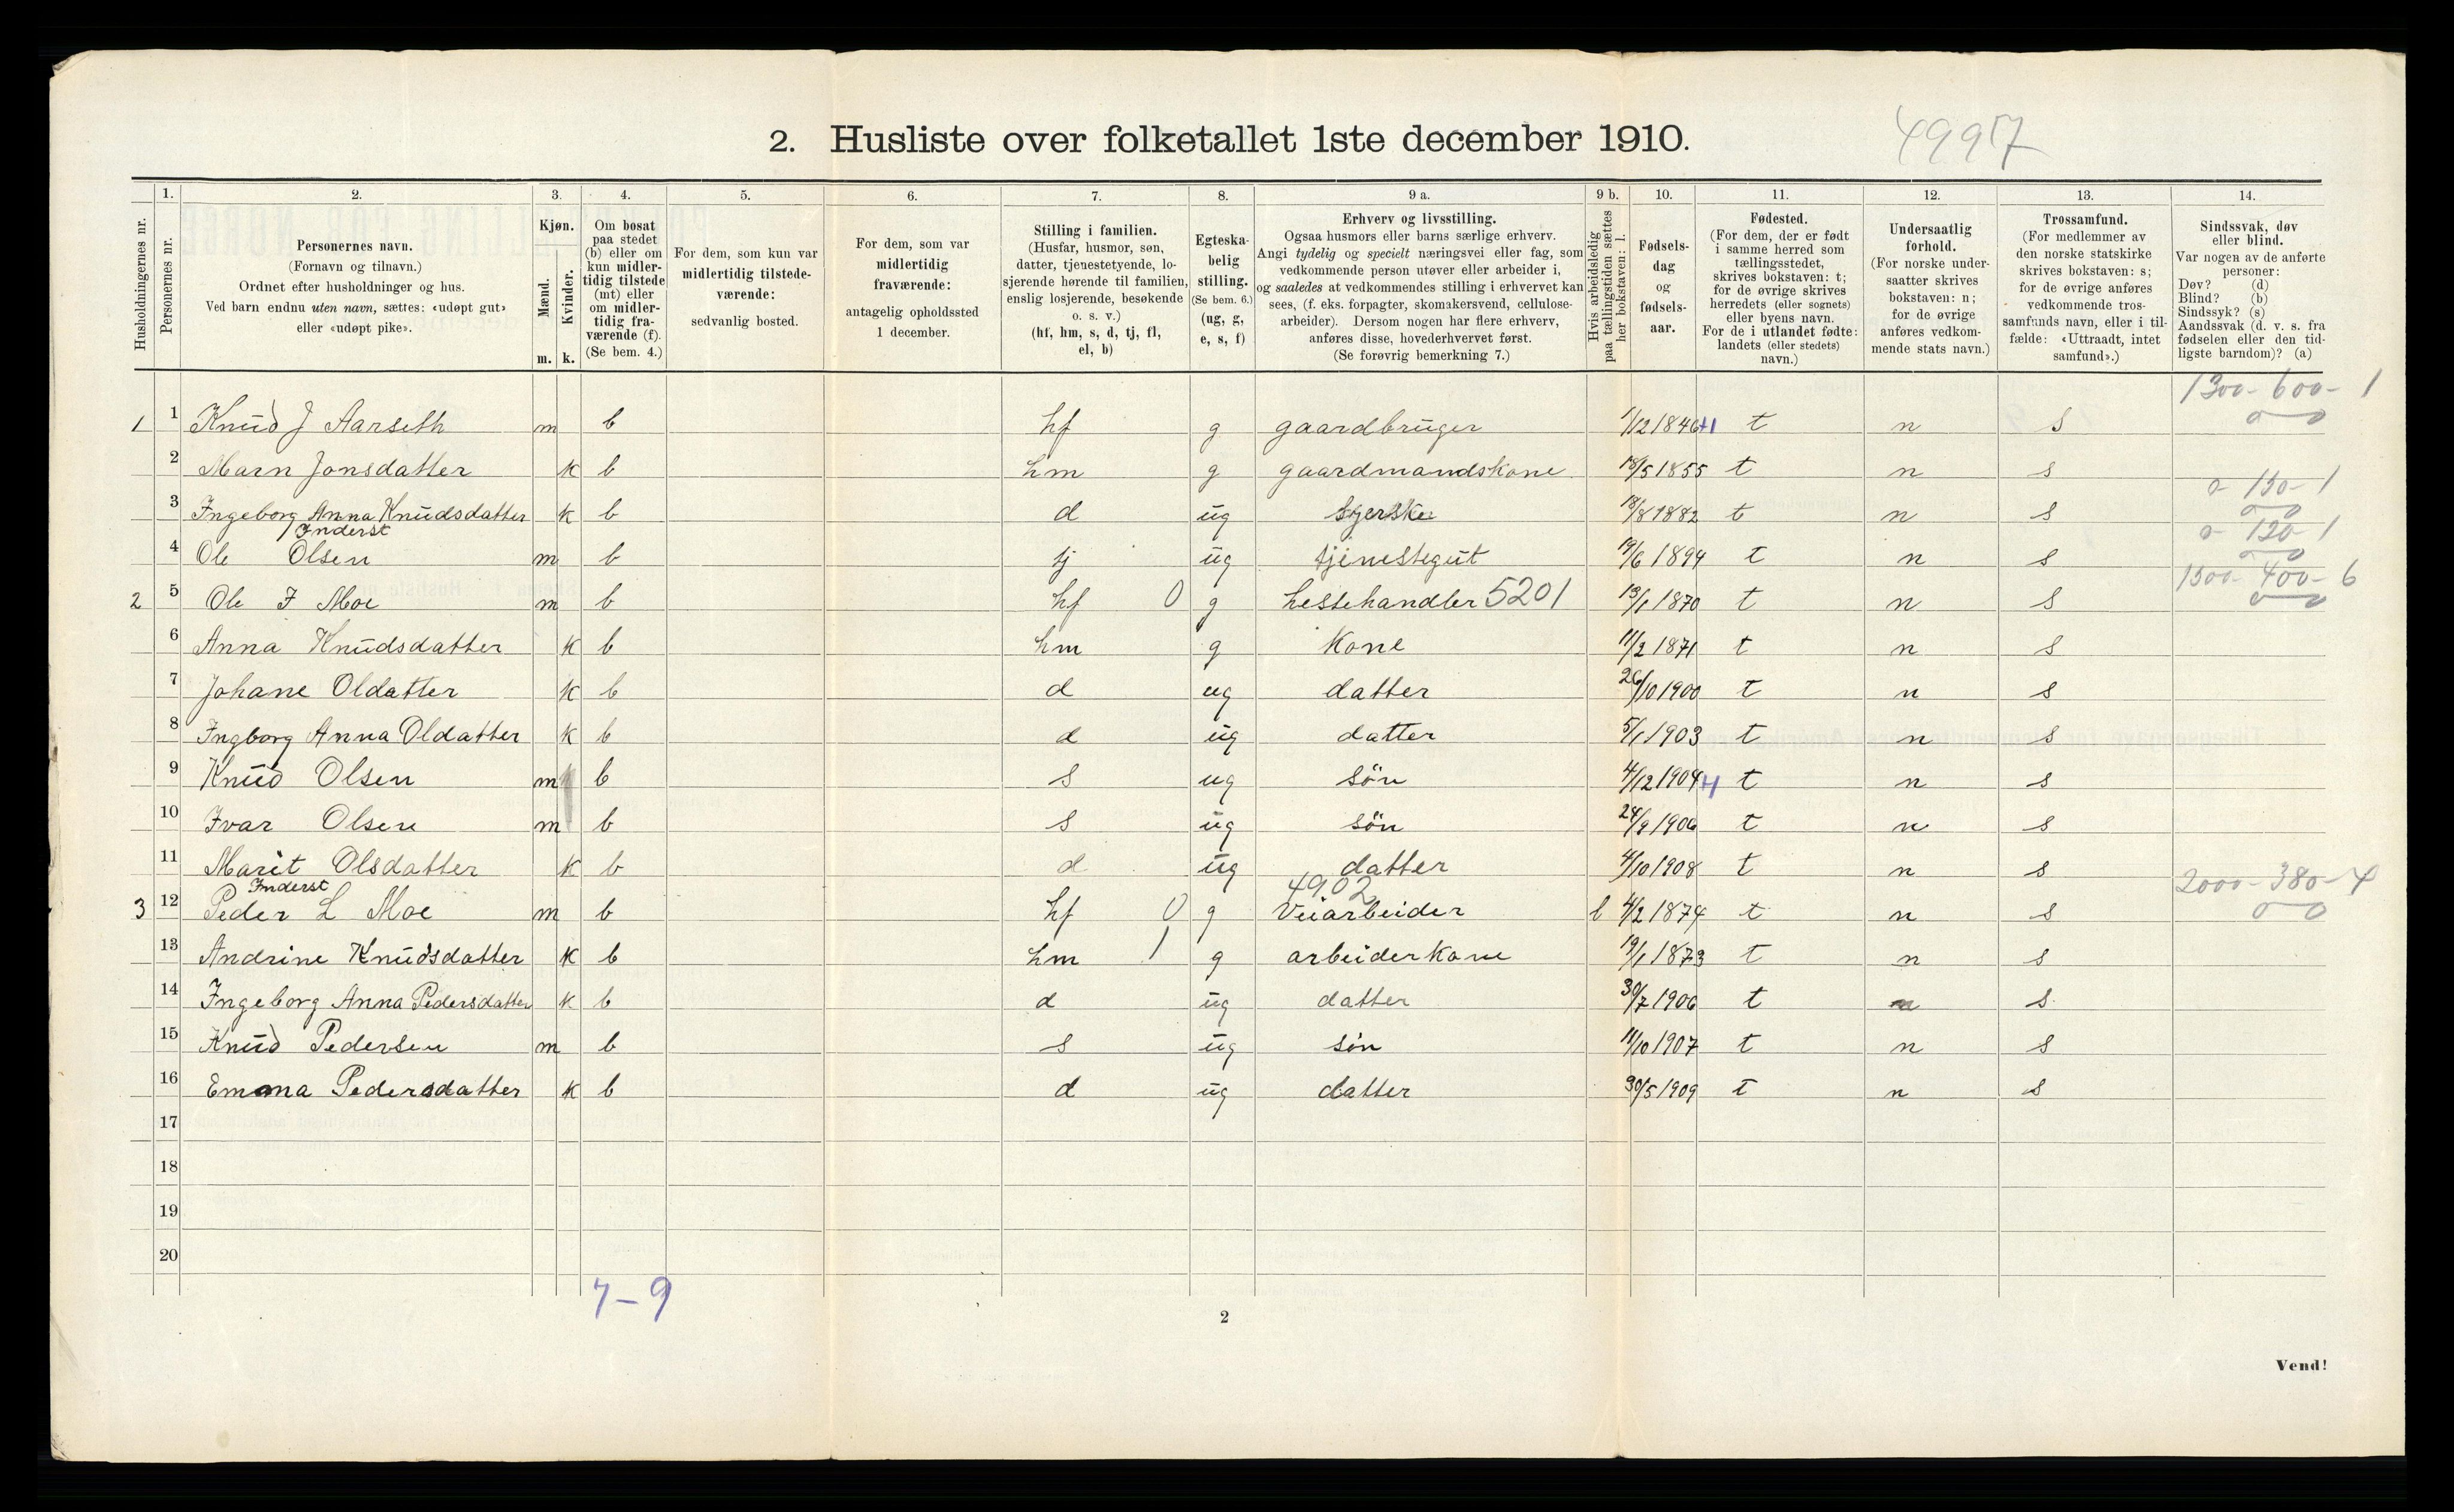 2. Husliste over folketallet 1ste december 1910.
4997
Husholdningernes nr.
1. Personernes nr.
2. Personernes navn.
(Fornavn og tilnavn.)
Ordnet efter husholdninger og hus.
Ved barn endnu uten navn, sættes: «udøpt gut»
eller «udøpt pike».
3. Kjøn.
Mænd. m.
Kvinder. k.
4. Om bosat
paa stedet
(b) eller om
kun midler-
tidig tilstede
(mt) eller
om midler-
tidig fra-
værende (f).
(Se bem. 4.)
5. For dem, som kun var
midlertidig tilstede-
værende:
sedvanlig bosted.
6. For dem, som var
midlertidig
fraværende:
antagelig opholdssted
1 december.
7. Stilling i familien.
(Husfar, husmor, søn,
datter, tjenestetyende, lo-
sjerende hørende til familien,
enslig losjerende, besøkende
o. s. v.)
(hf, hm, s, d, tj, fl,
el, b)
8. Egteska-
belig
stilling.
(Se bem. 6.)
(ug, g,
e, s, f)
9 a. Erhverv og livsstilling.
Ogsaa husmors eller barns særlige erhverv.
Angi tydelig og specielt næringsvei eller fag, som
vedkommende person utøver eller arbeider i,
og saaledes at vedkommendes stilling i erhvervet kan
sees, (f. eks. forpagter, skomakersvend, cellulose-
arbeider). Dersom nogen har flere erhverv,
anføres disse, hovederhvervet først.
(Se forøvrig bemerkning 7.)
9 b. Hvis arbeidsledig
paa tællingstiden sættes
her bokstaven: l.
10. Fødsels-
dag
og
fødsels-
aar.
11. Fødested.
(For dem, der er født
i samme herred som
tællingsstedet,
skrives bokstaven: t;
for de øvrige skrives
herredets (eller sognets)
eller byens navn.
For de i utlandet fødte:
landets (eller stedets)
navn.)
12. Undersaatlig
forhold.
(For norske under-
saatter skrives
bokstaven: n;
for de øvrige
anføres vedkom-
mende stats navn.)
13. Trossamfund.
(For medlemmer av
den norske statskirke
skrives bokstaven: s;
for de øvrige anføres
vedkommende tros-
samfunds navn, eller i til-
fælde: «Uttraadt, intet
samfund».)
14. Sindssvak, døv
eller blind.
Var nogen av de anførte
personer:
Døv? (d)
Blind? (b)
Sindssyk? (s)
Aandssvak (d. v. s. fra
fødselen eller den tid-
ligste barndom)? (a)
1300- 600- 1
1 1 Knud J Aarseth m b hf g gaardbruger 1/12 1846 +1 t n s
2 Marn Jonsdatter k b hm g gaardmandskone 18/5 1855 t n s
0- 150- 1
3 Ingeborg Anna Knudsdatter k b d ug Syerske 18/8 1882 t n s
Inderst 0- 120- 1
4 Ole Olsen m b tj ug tjenestegut 19/6 1894 t n s
1500- 400- 6
2 5 Ole I Moe m b hf 0 g hestehandler 5201 13/1 1870 t n s
6 Anna Knudsdatter k b hm g Kone 11/2 1871 t n s
7 Johane Oldatter k b d ug datter 26/10 1900 t n s
8 Ingborg Anna Oldatter k b d ug datter 5/1 1903 t n s
9 Knud Olsen m b s ug søn 4/12 1904 +1 t n s
10 Ivar Olsen m b s ug søn 24/9 1906 t n s
11 Marit Olsdatter k b d ug datter 4/10 1908 t n s
Inderst 4902 2000- 380- 4
3 12 Peder L Moe m b hf 0 g Veiarbeider l 4/2 1874 t n s
13 Andrine Knudsdatter k b hm 1 g arbeiderkone 19/1 1873 t n s
14 Ingeborg Anna Pedersdatter k b d ug datter 30/7 1906 t n s
15 Knud Pedersen m b s ug søn 11/10 1907 t n s
16 Emma Pedersdatter k b d ug datter 30/5 1909 t n s
17
18
19
20
7-9
2
Vend!